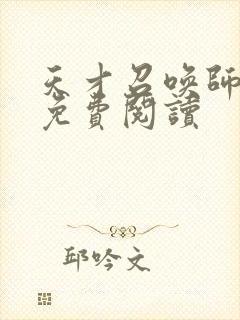 天才召喚師
免費閱讀
邱吟文